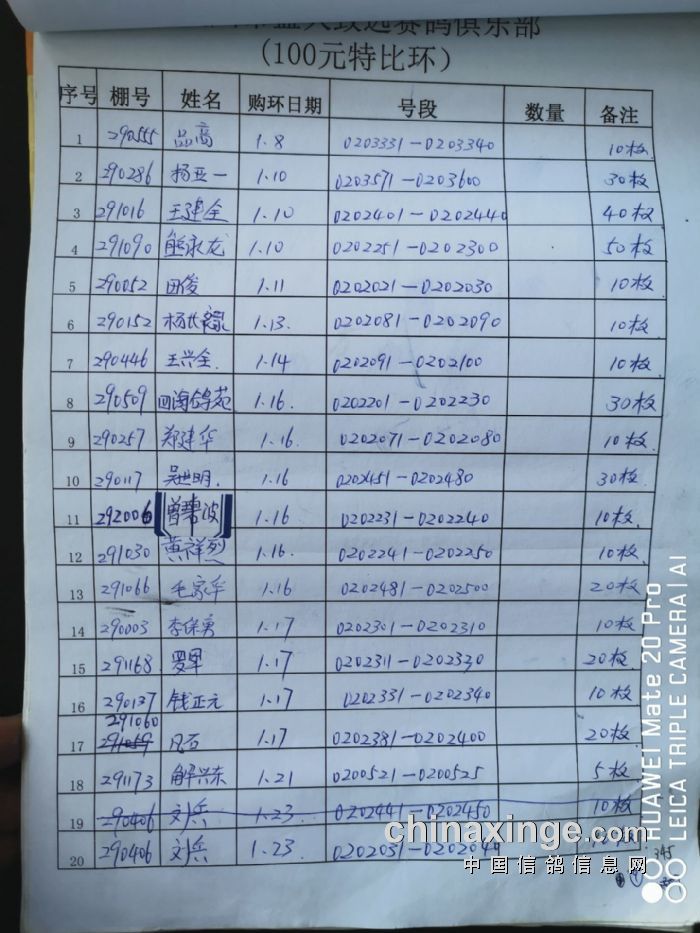 赛鸽俱乐部
(100元特比环)
序号 棚号 姓名 购环日期 号段 数量 备注
1 290555 品高 1.8 0203331-0203340 10枚
2 290286 杨亚一 1.10 0203571-0203600 30枚
3 291016 王建全 1.10 0202401-0202440 40枚
4 291090 熊永龙 1.10 0202251-0202300 50枚
5 290052 田俊 1.11 0202021-0202030 10枚
6 290152 杨长禄 1.13. 0202081-0202090 10枚
7 290446 王兴全. 1.14 0202091-0202100 10枚
8 290509 四海鸽苑 1.16. 0202201-0202230 30枚
9 290257 郑建华 1.16. 0202071-0202080 10枚
10 290117 吴世明. 1.16 0202451-0202480 30枚
11 292006 曾碧波 1.16 0202231-0202240 10枚
12 291030 黄祥烈 1.16. 0202241-0202250 10枚
13 291066 毛家华 1.16 0202481-0202500 20枚
14 290003 李保勇 1.17 0202301-0202310 10枚
15 291168 罗军 1.17 0202311-0202330 20枚
16 290137 钱正元 1.17 0202331-0202340 10枚
291060
17 291059 凡石 1.17 0202381-0202400 20枚
18 291173 解兴东 1.21 0200521-0200525 5枚
19 290406 刘兵 1.23 0202441-0202450 10枚
20 290406 刘兵 1.23 0202031-0202040
345
chinaxinge.com
中国信鸽信息网
HUAWEI Mate 20 Pro
LEICA TRIPLE CAMERA | AI